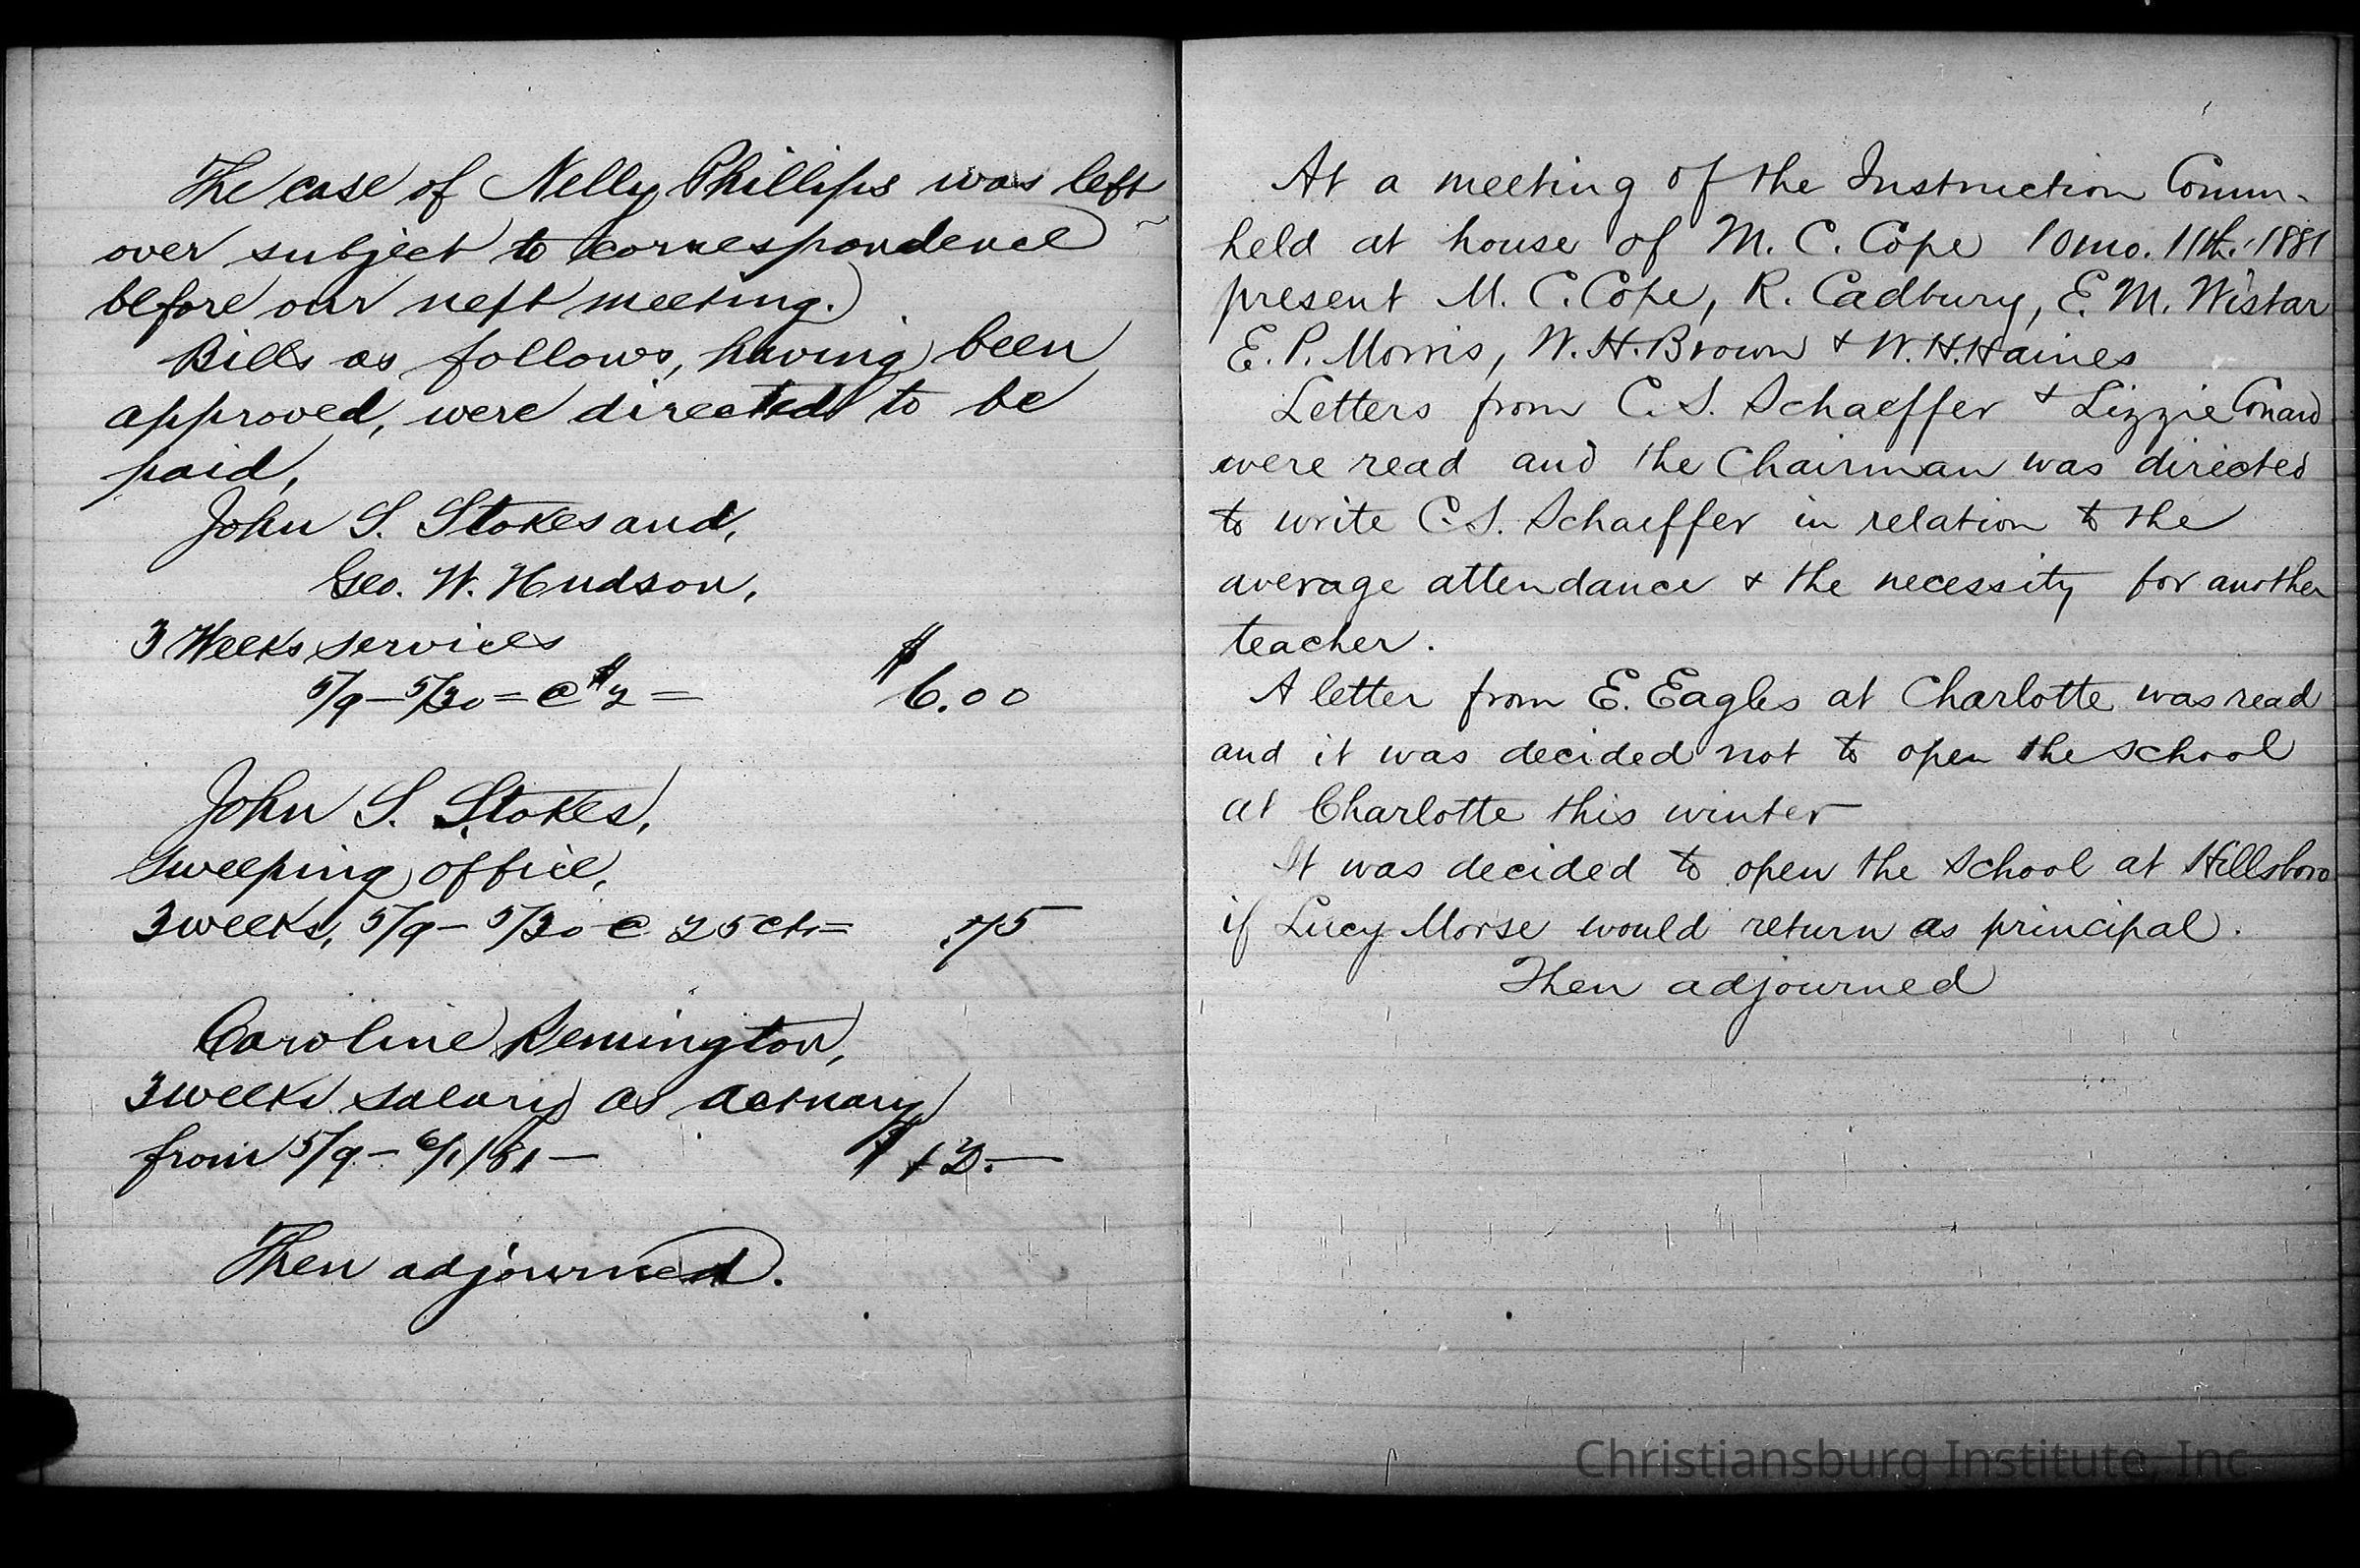 The case of Nelly Phillips was left
over subject to correspondence
before our next meeting.
Bills as follows, having been
approved, were directed to be
paid,
John S. Stokes and,
Geo. W. Hudson,
3 Weeks services
5/9 – 5/30 = @ $2 = $6.00
John S. Stokes,
Sweeping office,
3 weeks, 5/9 – 5/30 @ 25 cts = .75
Caroline Remington,
3 weeks salary as actuary
from 5/9 – 6/1/81 – $12. —
Then adjourned.
At a meeting of the Instruction Comm.
held at house of M. C. Cope 10 mo. 11th. 1881
present M. C. Cope, R. Cadbury, E. M. Wistar
E. P. Morris, W. H. Brown & W. H. Haines
Letters from C. S. Schaeffer & Lizzie Conard
were read and the Chairman was directed
to write C. S. Schaeffer in relation to the
average attendance & the necessity for another
teacher.
A letter from E. Eagles at Charlotte was read
and it was decided not to open the school
at Charlotte this winter
It was decided to open the School at Hillsboro
if Lucy Morse would return as principal.
Then adjourned
Christiansburg Institute, Inc